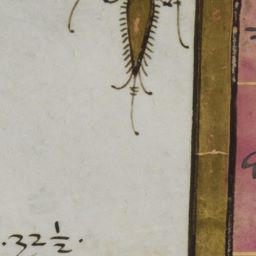 .32 ½.